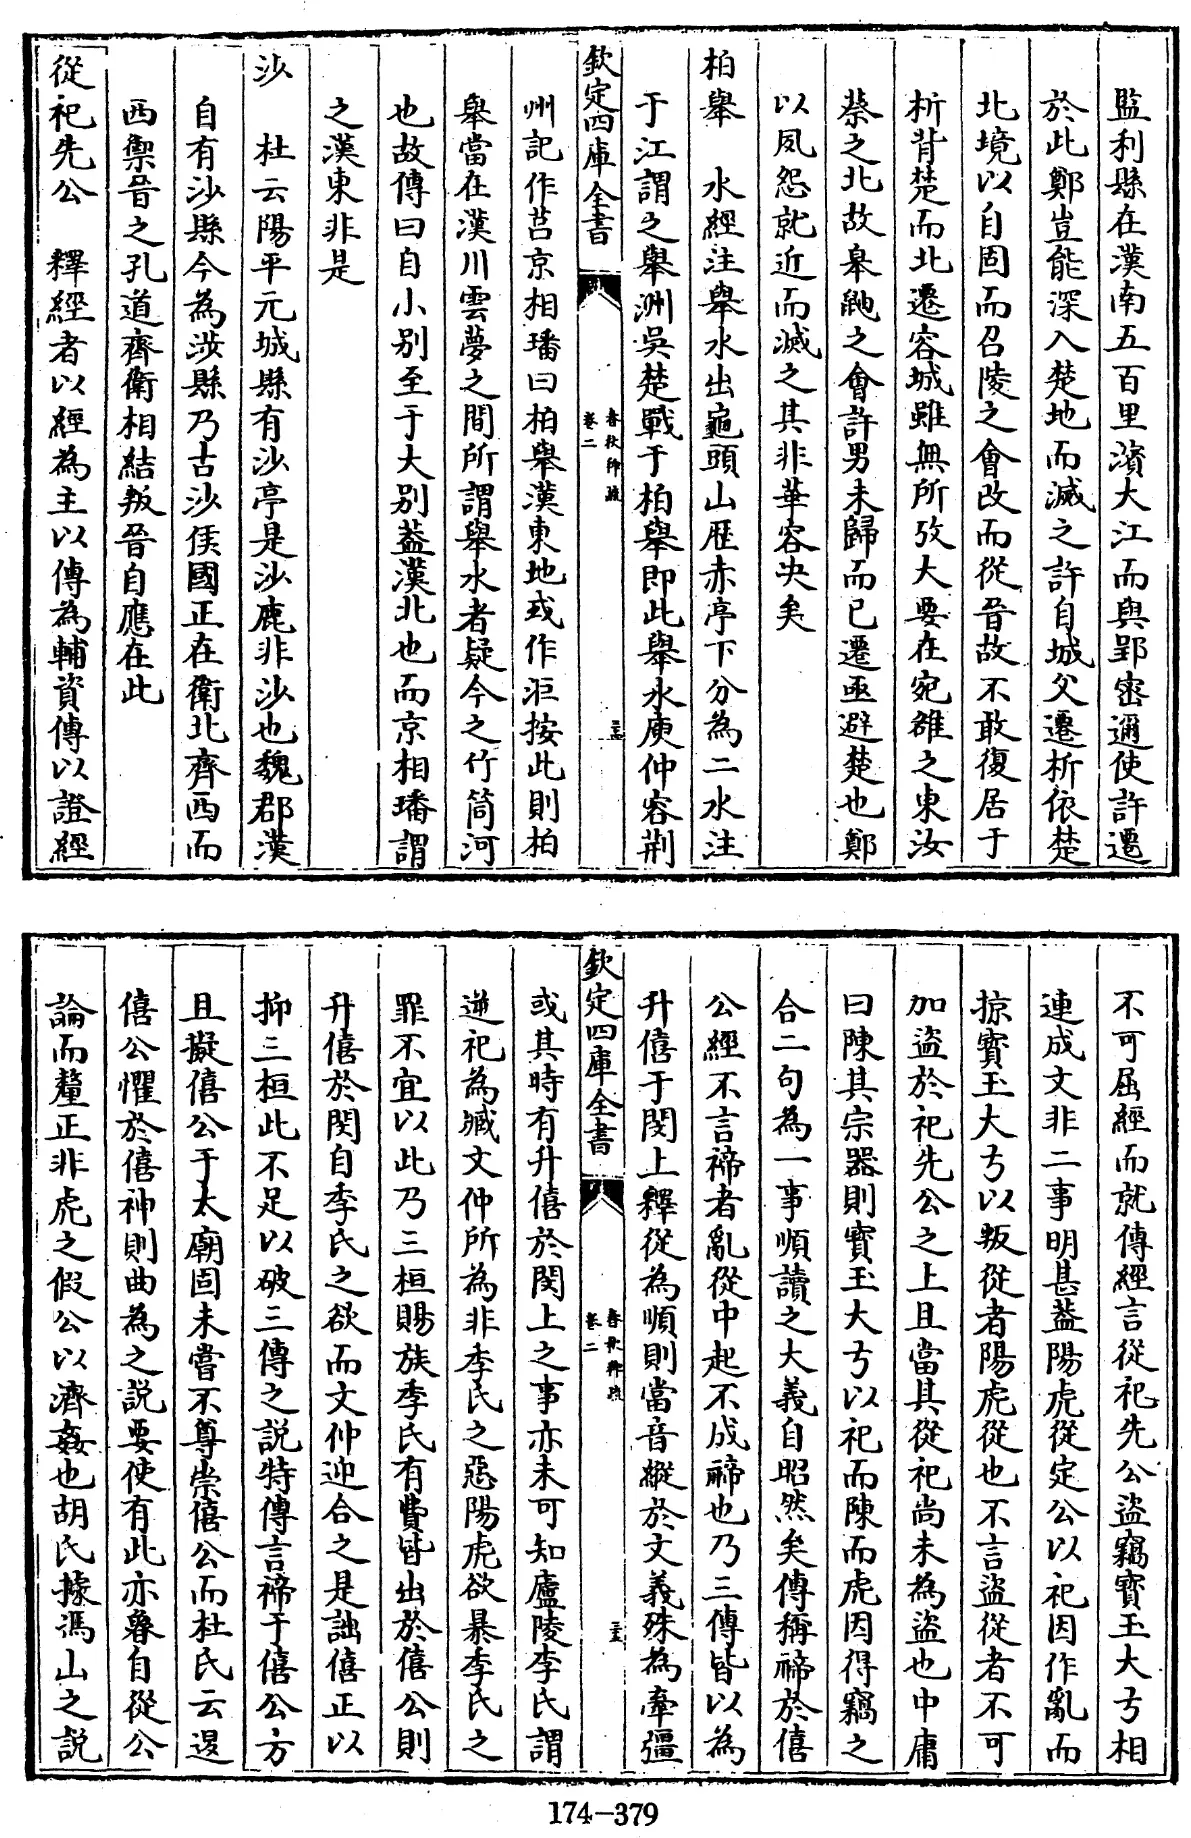 監利縣在漢南五百里濱大江而與郢密邇使許遷
於此鄭豈能深入楚地而滅之許自城父遷析依楚
北境以自固而召陵之會改而從晉故不敢復居于
析背楚而北遷容城雖無所攷大要在宛雒之東汝
蔡之北故皋鼬之會許男未歸而已遷亟避楚也鄭
以夙怨就近而滅之其非華容決矣
柏舉　水經注舉水出龜頭山歷赤亭下分為二水注
于江謂之舉洲吳楚戰于柏舉即此舉水庾仲容荆
欽定四庫全書
春秋稗疏
卷二
三
州記作莒京相璠曰柏舉漢東地或作洰按此則柏
舉當在漢川雲夢之間所謂舉水者疑今之竹筒河
也故傳曰自小別至于大別蓋漢北也而京相璠謂
之漢東非是
沙　杜云陽平元城縣有沙亭是沙鹿非沙也魏郡漢
自有沙縣今為涉縣乃古沙侯國正在衛北齊西而
西禦晉之孔道齊衛相結叛晉自應在此
從祀先公　釋經者以經為主以傳為輔資傳以證經
不可屈經而就傳經言從祀先公盜竊寶玉大弓相
連成文非二事明甚蓋陽虎從定公以祀因作亂而
掠寶玉大弓以叛從者陽虎從也不言盜從者不可
加盜於祀先公之上且當其從祀尚未為盜也中庸
曰陳其宗器則寶玉大弓以祀而陳而虎因得竊之
合二句為一事順讀之大義自昭然矣傳稱禘於僖
公經不言禘者亂從中起不成禘也乃三傳皆以為
升僖于閔上釋從為順則當音縱於文義殊為牽彊
欽定四庫全書
春秋稗疏
卷二
三
或其時有升僖於閔上之事亦未可知廬陵李氏謂
逆祀為臧文仲所為非季氏之惡陽虎欲暴季氏之
罪不宜以此乃三桓賜族季氏有費皆出於僖公則
升僖於閔自季氏之欲而文仲迎合之是詘僖正以
抑三桓此不足以破三傳之說特傳言禘于僖公方
且擬僖公于太廟固未嘗不尊崇僖公而杜氏云退
僖公懼於僖神則曲為之說要使有此亦魯自從公
論而釐正非虎之假公以濟姦也胡氏據馮山之說
174-379